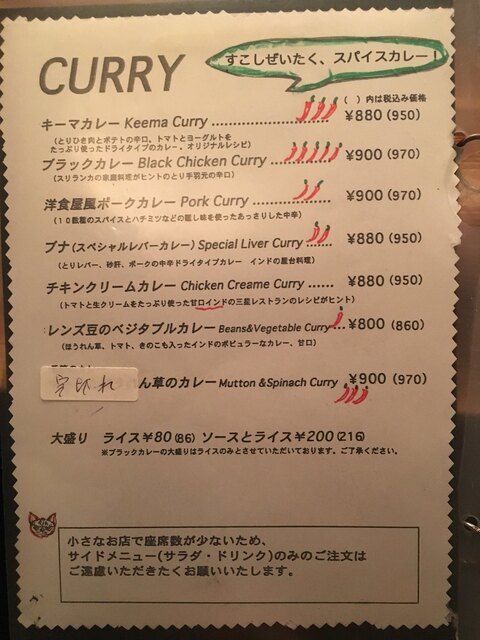 CURRY
すこしぜいたく、スパイスカレー!
( )内は税込み価格
キーマカレー Keema Curry ¥880 (950)
(とりひき肉とポテトの辛口、トマトとヨーグルトを
たっぷり使ったドライタイプのカレー、オリジナルレシピ)
ブラックカレー Black Chicken Curry ¥900 (970)
(スリランカの家庭料理がヒントのとり手羽元の辛口)
洋食屋風ポークカレー Pork Curry ¥900 (970)
(10数種のスパイスとハチミツなどの隠し味を使ったあっさりした中辛)
ブナ(スペシャルレバーカレー) Special Liver Curry ¥880 (950)
(とりレバー、砂肝、ポークの中辛ドライタイプカレー インドの屋台料理)
チキンクリームカレー Chicken Creame Curry ...... ¥880 (950)
(トマトと生クリームをたっぷり使った甘口インドの三星レストランのレシピがヒント)
レンズ豆のベジタブルカレー Beans&Vegetable Curry ¥800 (860)
(ほうれん草、トマト、きのこも入ったインドのポピュラーなカレー、甘口)
売切れ ん草のカレー Mutton &Spinach Curry ¥900 (970)
大盛り ライス¥80(86) ソースとライス¥200(216)
※ブラックカレーの大盛りはライスのみとさせていただいております。ご了承ください。
小さなお店で座席数が少ないため、
サイドメニュー(サラダ・ドリンク)のみのご注文は
ご遠慮いただきたくお願いいたします。